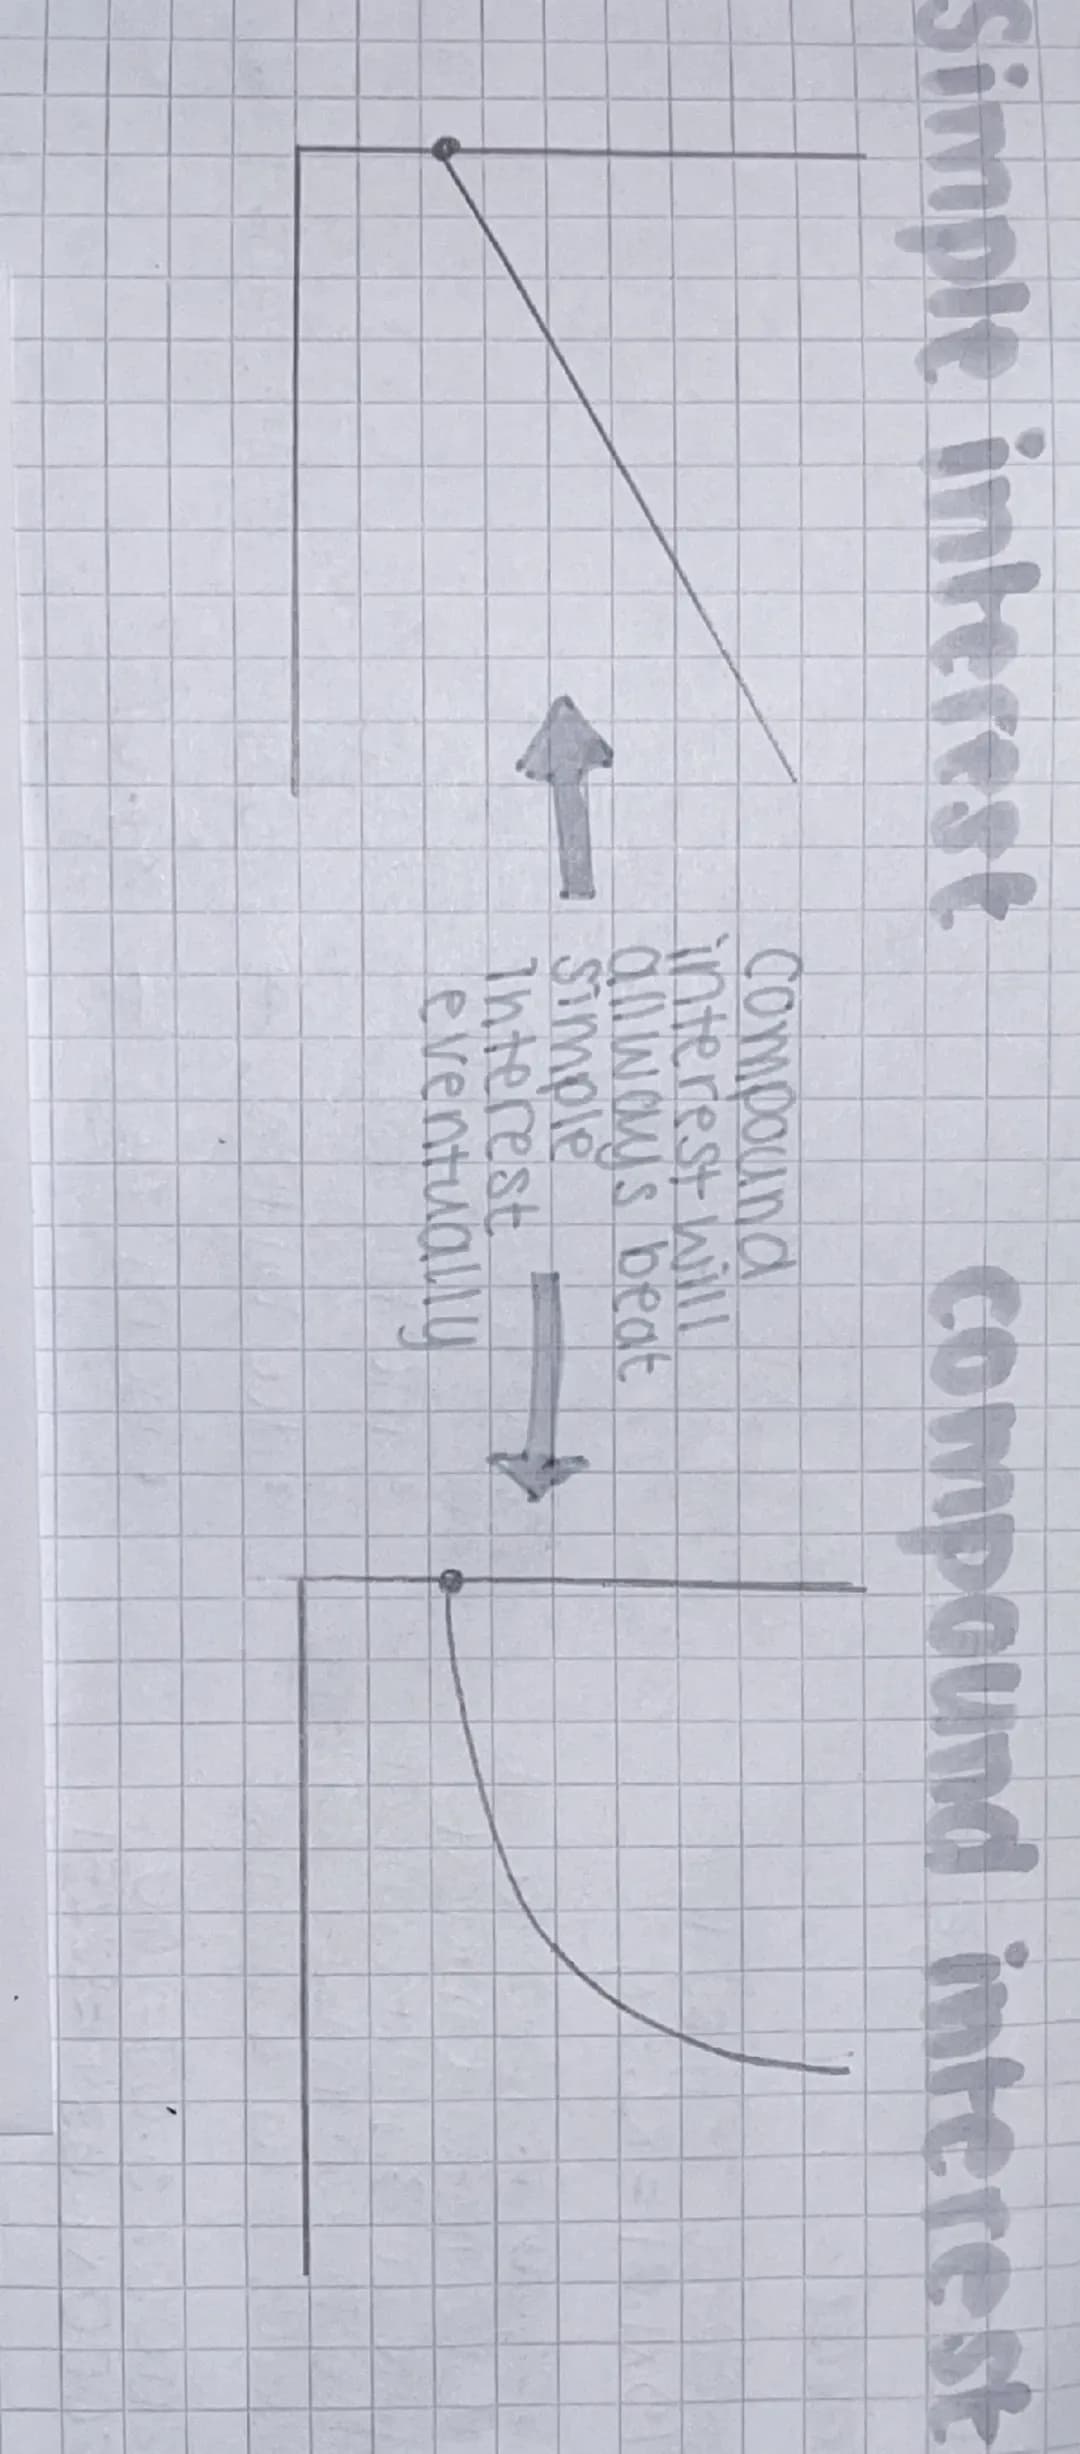 simple interest
compound interest
compound
interest will
allways beat
simple
interest
eventually